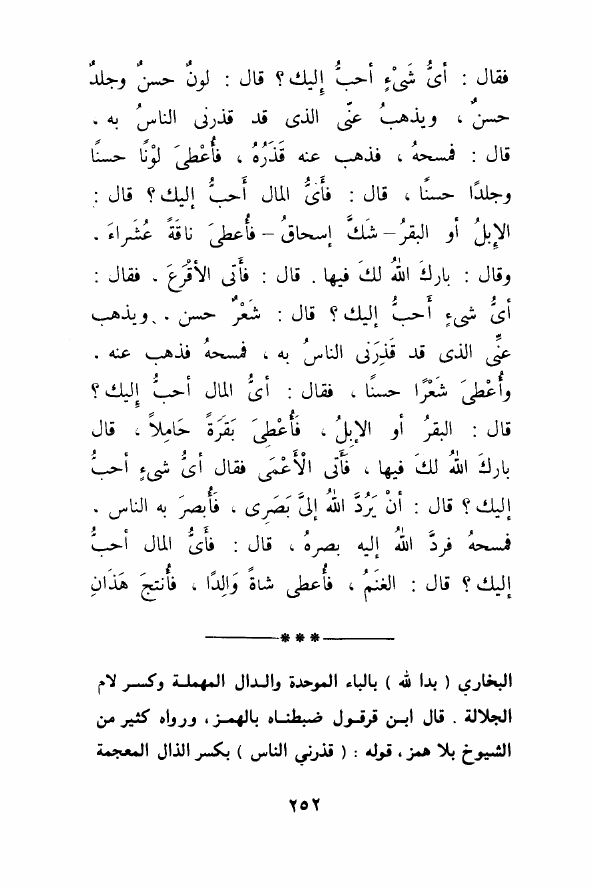 فقال : أىُّ شَىْءٍ أحبُّ إليك ؟ قال : لونٌ حسنٌ وجلدٌ
حسنٌ ، ويذهبُ عنّى الذى قد قذرنى الناسُ به .
قال : فمسحهُ ، فذهب عنه قَذَرُهُ ، فأُعْطىَ لوْنًا حسنًا
وجلدًا حسنًا ، قال : فأَىُّ المال أحبُّ إليك ؟ قال :
الإبلُ أو البقرُ – شَكَّ إسحاقُ – فأُعطىَ ناقَةً عُشَراءَ .
وقال : باركَ اللهُ لكَ فيها . قال : فأَتى الأقْرَعَ . فقال :
أىُّ شىءٍ أَحبُّ إليك ؟ قال : شَعْرٌ حسن . ويذهب
عنِّى الذى قد قَذِرَنى الناسُ به ، فمسحهُ فذهب عنه .
وأُعْطىَ شَعْرًا حسنًا ، فقال : أىُّ المال أحبُّ إليك ؟
قال : البقرُ أو الإبلُ ، فَأُعْطِىَ بَقَرَةً حَامِلاً ، قال
باركَ اللهُ لكَ فيها ، فَأَتى الْأَعْمَى فقال أىُّ شىءٍ أحبُّ
إليك ؟ قال : أنْ يَرُدَّ اللهُ إلىَّ بَصَرِى ، فَأُبصرَ به الناس .
فمسحهُ فردَّ اللهُ إليه بصرهُ ، قال : فأَىُّ المال أحبُّ
إليك ؟ قال : الغنَمُ ، فأُعطى شاةً وَالِدًا ، فأُنتجَ هَذَانِ
***
البخاري ( بدا لله ) بالباء الموحدة والدال المهملة وكسر لام
الجلالة . قال ابن قرقول ضبطناه بالهمز ، ورواه كثير من
الشيوخ بلا همز ، قوله : ( قذرني الناس ) بكسر الذال المعجمة
٢٥٢